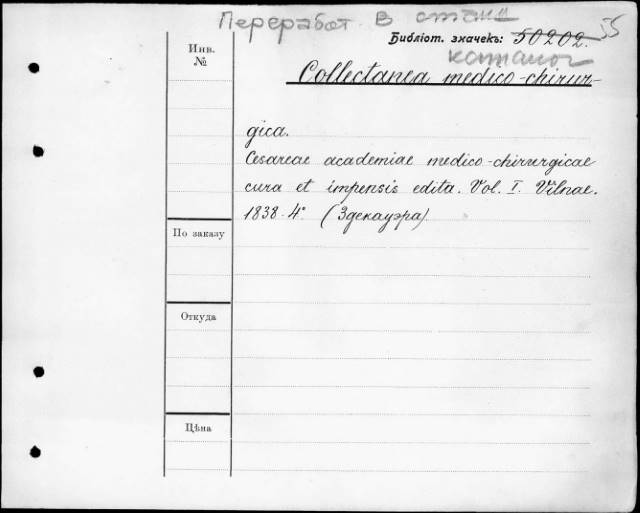 Переработ. в отд.
Инв.
№
Библіот. значекъ: 50202. 55
каталог
Collectanea medico-chirur-
gica.
Cesareae academiae medico-chirurgicae
cura et impensis edita. Vol. I. Vilnae.
1838. 4° (Эдекауэра)
По заказу
Откуда
Цѣна